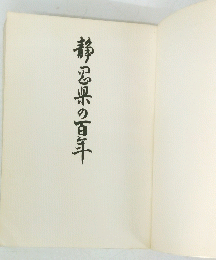 静岡県の百年